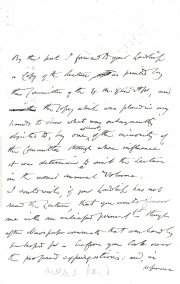 By this post I forward to your Lordship
a Copy of the Lecture as printed by
the Committee of the Y. M. Xtian Assn, and
the Copy which was placed in my
hands to show what was subsequently
objected to, by one, of the minority of
the Committee through whose influence
it was determined to omit the Lecture
in the usual annual Volume.
I could wish, if your Lordship has not
read the Lecture that you would favour
me with an
after newspaper comments that can hardly be
before you look over
the proposed expurgations: and in
reference